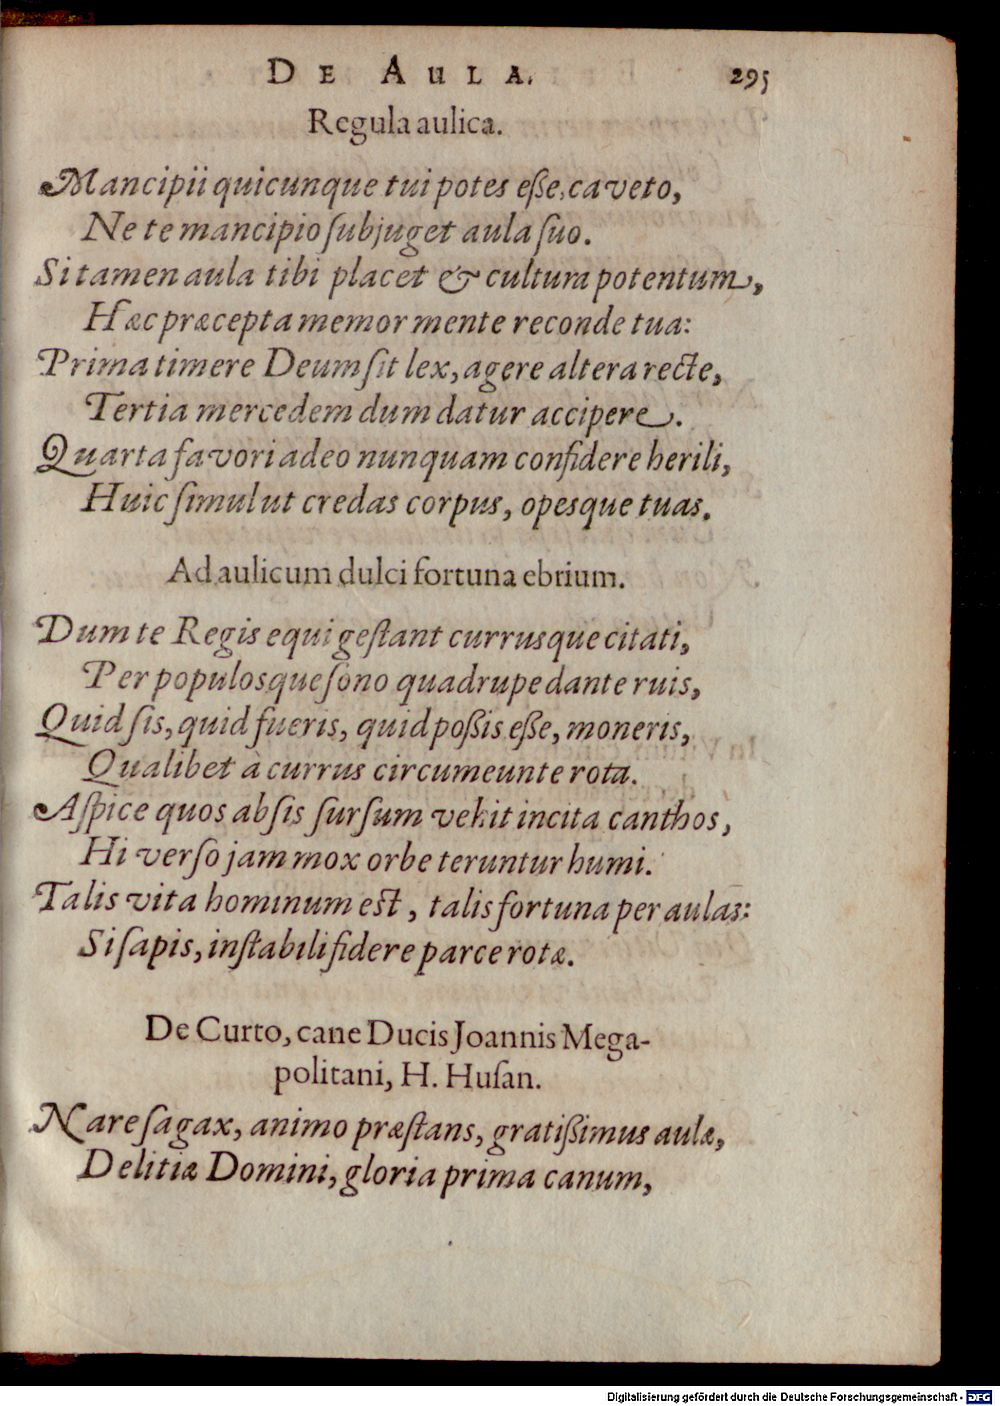 DE AULA. 295
Regula aulica.
Mancipii quicunque tui potes eſſe, caveto,
Ne te mancipio ſubjuget aula ſuo.
Si tamen aula tibi placet & cultura potentum,
Hæc præcepta memor mente reconde tua:
Prima timere Deum ſit lex, agere altera recte,
Tertia mercedem dum datur accipere.
Quarta favori adeo nunquam confidere herili,
Huic ſimul ut credas corpus, opesque tuas.
Ad aulicum dulci fortuna ebrium.
Dum te Regis equi geſtant currusque citati,
Per populosque ſono quadrupedante ruis,
Quid ſis, quid fueris, quid poßis eſſe, moneris,
Qualibet a currus circumeunte rota.
Aſpice quos abſis ſurſum vehit incita canthos,
Hi verſo jam mox orbe teruntur humi.
Talis vita hominum eſt, talis fortuna per aulas:
Si ſapis, inſtabili fidere parce rotæ.
De Curto, cane Ducis Joannis Mega-
politani, H. Huſan.
Nare ſagax, animo præſtans, gratißimus aulæ,
Delitiæ Domini, gloria prima canum,
Digitalisierung gefördert durch die Deutsche Forschungsgemeinschaft - DFG